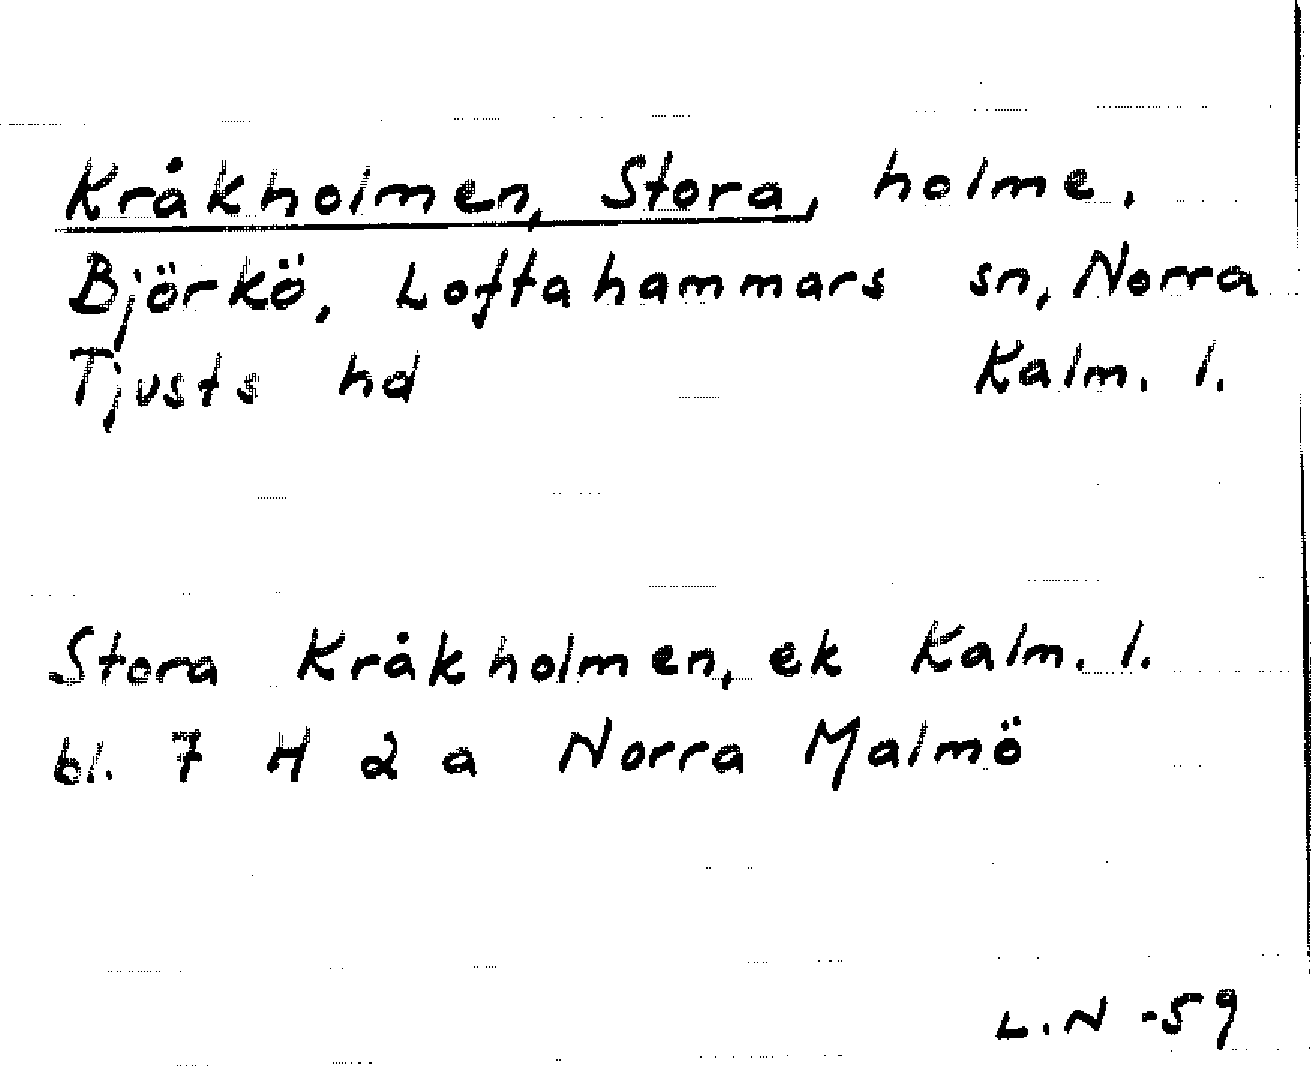 Kråkholmen, Stora, holme.
Björkö, Loftahammars sn, Norra
Tjusts hd Kalm. l.
Stora Kråkholmen, ek Kalm. l.
bl. 7 H 2 a Norra Malmö
L.N -59